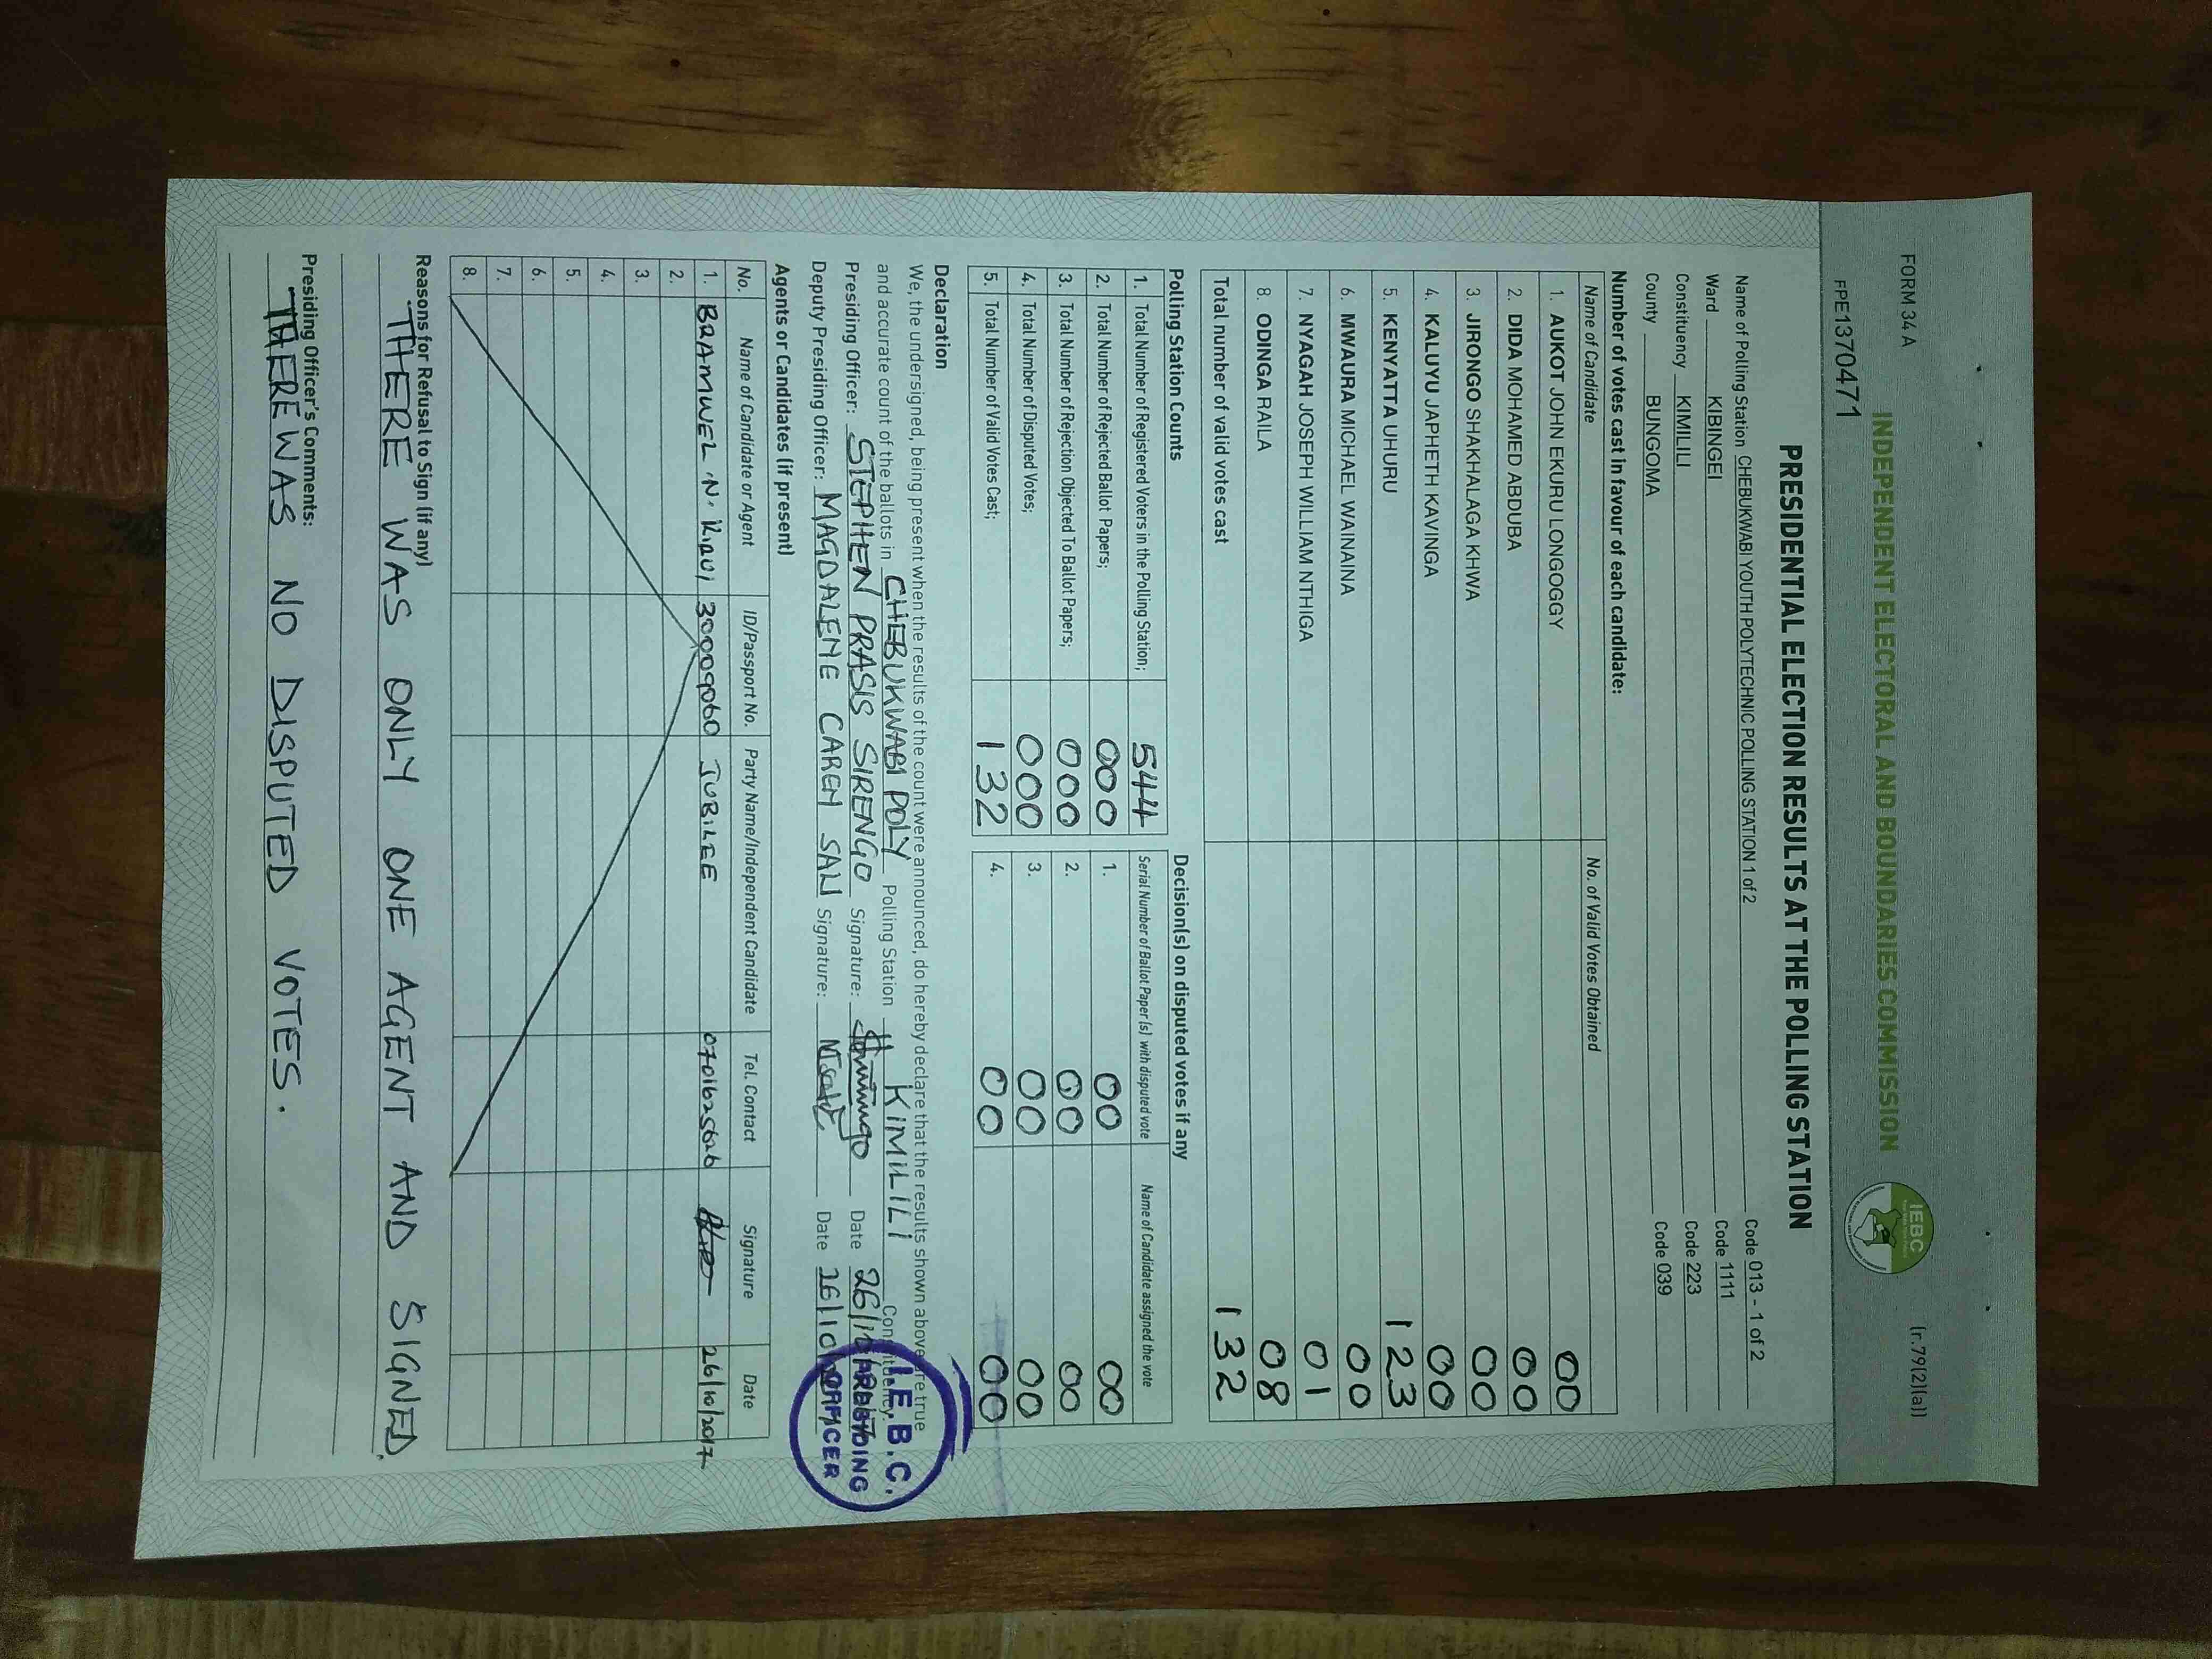 FORM 34 A
(r.79(2)(a))
INDEPENDENT ELECTORAL AND BOUNDARIES COMMISSION
IEBC
FPE1370471
PRESIDENTIAL ELECTION RESULTS AT THE POLLING STATION
Name of Polling Station CHEBUKWABI YOUTH POLYTECHNIC POLLING STATION 1 of 2 Code 013 - 1 of 2
Ward KIBINGEI Code 1111
Constituency KIMILILI Code 223
County BUNGOMA Code 039
Number of votes cast in favour of each candidate:
Name of Candidate No. of Valid Votes Obtained
1. AUKOT JOHN EKURU LONGOGGY 00
2. DIDA MOHAMED ABDUBA 00
3. JIRONGO SHAKHALAGA KHWA 00
4. KALUYU JAPHETH KAVINGA 00
5. KENYATTA UHURU 123
6. MWAURA MICHAEL WAINAINA 00
7. NYAGAH JOSEPH WILLIAM NTHIGA 01
8. ODINGA RAILA 08
Total number of valid votes cast 132
Polling Station Counts
1. Total Number of Registered Voters in the Polling Station; 544
2. Total Number of Rejected Ballot Papers; 000
3. Total Number of Rejection Objected To Ballot Papers; 000
4. Total Number of Disputed Votes; 000
5. Total Number of Valid Votes Cast; 132
Decision(s) on disputed votes if any
Serial Number of Ballot Paper (s) with disputed vote Name of Candidate assigned the vote
1. 00 00
2. 00 00
3. 00 00
4. 00 00
Declaration
We, the undersigned, being present when the results of the count were announced, do hereby declare that the results shown above are true
and accurate count of the ballots in CHEBUKWABI POLY Polling Station KIMILILI Constituency.
Presiding Officer: STEPHEN PRASIS SIRENGO Signature: Date 26/10
Deputy Presiding Officer: MAGDALENE CAREN SAN Signature: Date 26/10/
I.E.B.C.
PRESIDING
OFFICER
Agents or Candidates (if present)
No. Name of Candidate or Agent ID/Passport No. Party Name/Independent Candidate Tel. Contact Signature Date
1. BRAMWEL N. 30009060 JUBILEE 0701625626 26/10/2017
2.
3.
4.
5.
6.
7.
8.
Reasons for Refusal to Sign (if any)
THERE WAS ONLY ONE AGENT AND SIGNED.
Presiding Officer's Comments:
THERE WAS NO DISPUTED VOTES.